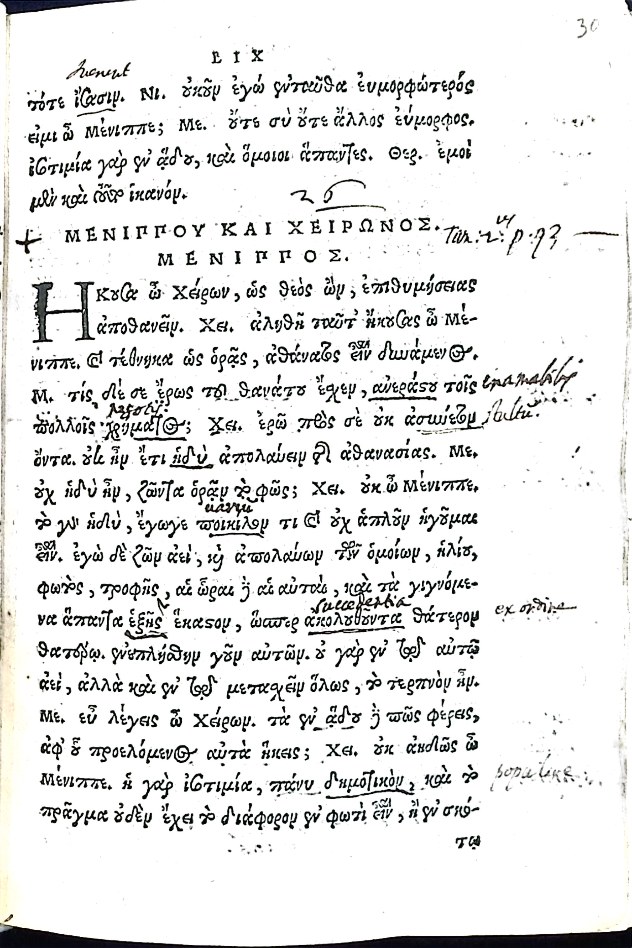 30
ΕΙΣ
τότε ἴσασιν. Νι. οὐκοῦν ἐγὼ ἐνταῦθα εὐμορφότερός
εἰμι ὦ Μένιππε; Με. οὔτε σὺ οὔτε ἄλλος εὔμορφος.
ἰσοτιμία γὰρ ἐν ᾅδου, καὶ ὅμοιοι ἅπαντες. Θερ. ἐμοὶ
μὲν καὶ τοῦτο ἱκανόν.
26
ΜΕΝΙΠΠΟΥ ΚΑΙ ΧΕΙΡΩΝΟΣ.
ΜΕΝΙΠΠΟΣ.
Ηκουσα ὦ Χείρων, ὡς θεὸς ὢν, ἐπιθυμήσειας
ἀποθανεῖν. Χει. ἀληθῆ ταῦτ' ἤκουσας ὦ Μέ-
νιππε. καὶ τέθνηκα ὡς ὁρᾷς, ἀθάνατος εἶναι δυνάμενος.
Μ. τίς δέ σε ἔρως τοῦ θανάτου ἔσχεν, ἀνεράστου τοῖς
πολλοῖς χρήματος; Χει. ἐρῶ πρὸς σὲ οὐκ ἀσύνετον
ὄντα. οὐκ ἦν ἔτι ἡδὺ ἀπολαύειν τῆς ἀθανασίας. Με.
οὐχ ἡδὺ ἦν, ζῶντα ὁρᾷν τὸ φῶς; Χει. οὐκ ὦ Μένιππε.
τὸ γὰρ ἡδὺ, ἔγωγε ποικίλον τι καὶ οὐχ ἁπλοῦν ἡγοῦμαι
εἶναι. ἐγὼ δὲ ζῶν ἀεὶ, καὶ ἀπολαύων τῶν ὁμοίων, ἡλίου,
φωτὸς, τροφῆς, αἱ ὧραι δὲ αἱ αὐταὶ, καὶ τὰ γιγνόμε-
να ἅπαντα ἑξῆς ἕκαστον, ὥσπερ ἀκολουθοῦντα θάτερον
θατέρῳ. ἐνεπλήσθην γοῦν αὐτῶν. οὐ γὰρ ἐν τῷ αὐτῷ
ἀεὶ, ἀλλὰ καὶ ἐν τῷ μετασχεῖν ὅλως, τὸ τερπνὸν ἦν.
Με. εὖ λέγεις ὦ Χείρων. τὰ ἐν ᾅδου δὲ πῶς φέρεις,
ἀφ' οὗ προελόμενος αὐτὰ ἥκεις; Χει. οὐκ ἀηδῶς ὦ
Μένιππε. ἡ γὰρ ἰσοτιμία, πάνυ δημοτικὸν, καὶ τὸ
πρᾶγμα οὐδὲν ἔχει τὸ διάφορον ἐν φωτὶ εἶναι, ἢ ἐν σκό-
τῳ
ex ordine